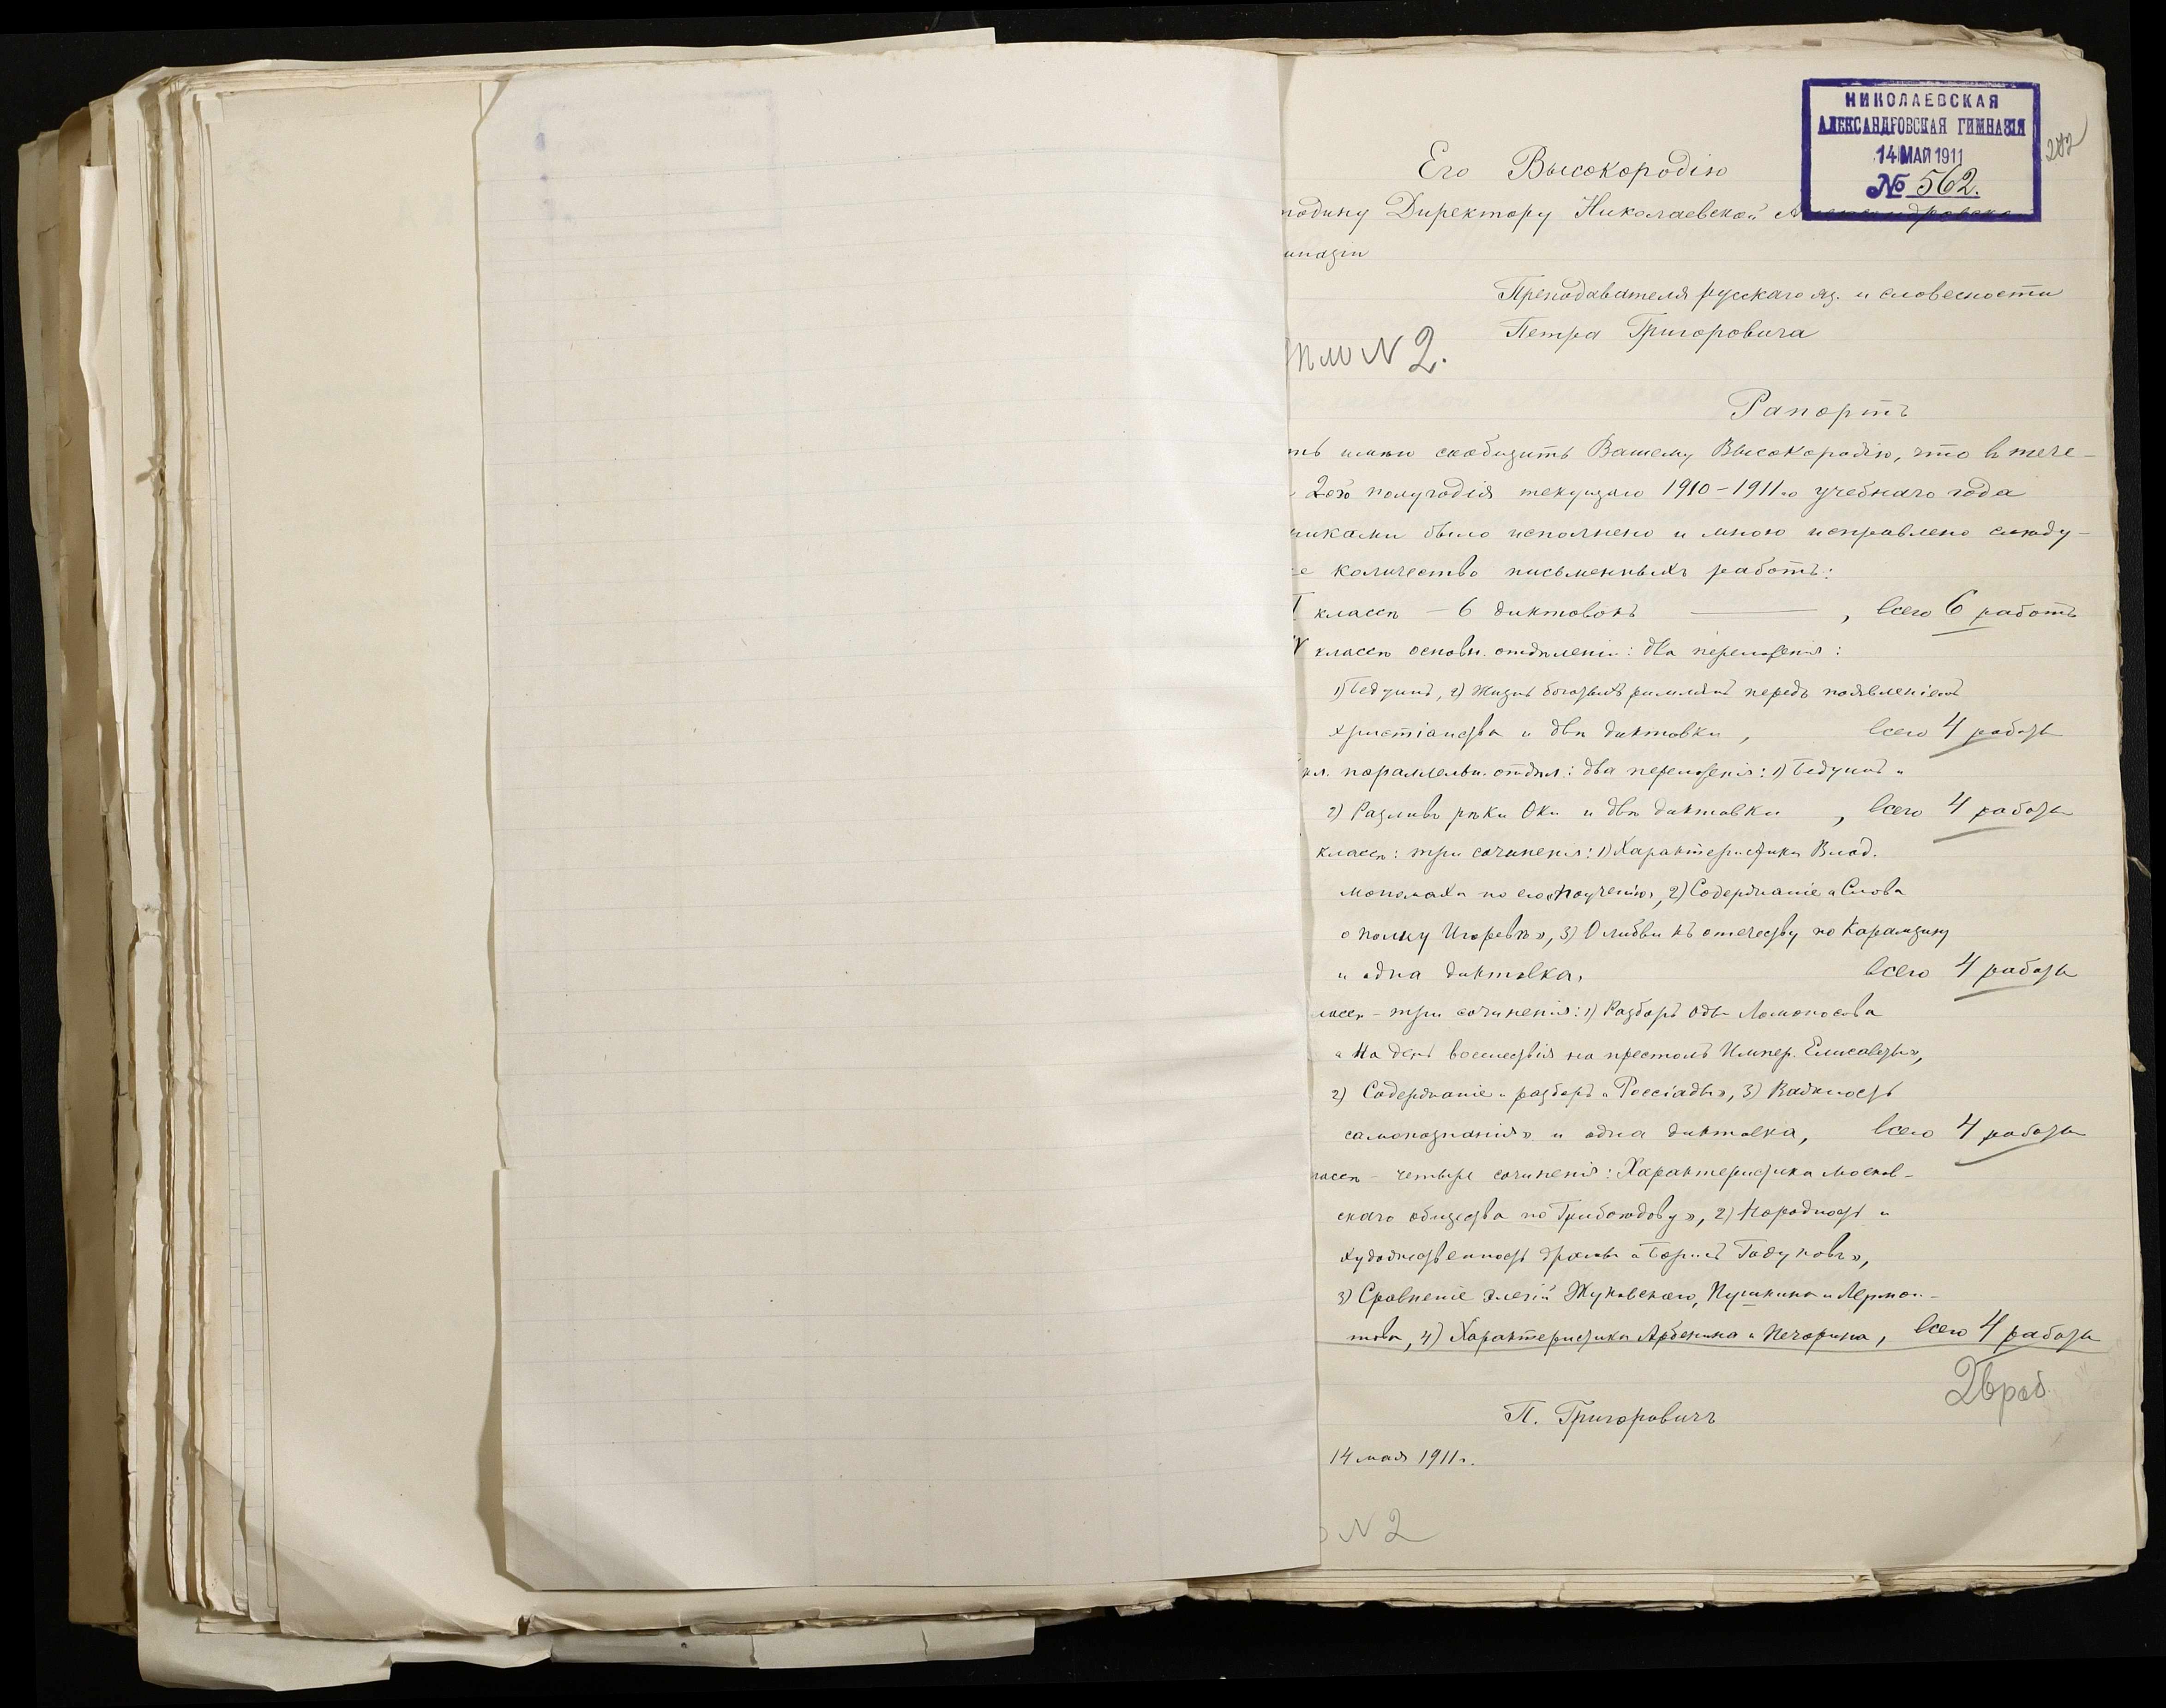 НИКОЛАЕВСКАЯ
АЛЕКСАНДРОВСКАЯ ГИМНАЗІЯ
14 МАЯ 1911
№ 562.
Его Высокородію
подину Директору Николаевской Александровско
имназіи
Преподавателя русскаго яз. и словесности
Петра Григоровича
№ 2.
Рапортъ
ть имѣю сообщить Вашему Высокородію, что въ тече-
2ого полугодія текущаго 1910-1911го учебнаго года
никами было исполнено и мною исправлено слѣду-
е количество письменныхъ работъ:
классѣ - 6 диктовокъ ———, всего 6 работъ
классѣ основн. отдѣленіи: два переложенія:
1) Бедуинъ, 2) Жизнь богатыхъ римлянъ передъ появленіемъ
христіанства и двѣ диктовки, всего 4 работы
кл. параллельн. отдѣл: два переложенія: 1) Бедуинъ и
2) Разливъ рѣки Оки и двѣ диктовки, всего 4 работы
классѣ: три сочиненія: 1) Характеристика Влад.
Мономаха по его «Поученію», 2) Содержаніе «Слова
о полку Игоревѣ», 3) О любви къ отечеству по Карамзину
и одна диктовка, всего 4 работы
лассѣ - три сочиненія: 1) Разборъ оды Ломоносова
«На день восшествія на престолъ Импер. Елисаветы»,
2) Содержаніе и разборъ «Россіады», 3) Важность
самопознанія» и одна диктовка, всего 4 работы
лассѣ - четыре сочиненія: Характеристика москов-
скаго общества по Грибоѣдову», 2) Народность и
художественность драмы «Борисъ Годуновъ»,
3) Сравненіе элегій Жуковскаго, Пушкина и Лермон-
това, 4) Характеристика Арбенина и Печорина, всего 4 работы
26 раб.
П. Григоровичъ
14 мая 1911 г.
№ 2